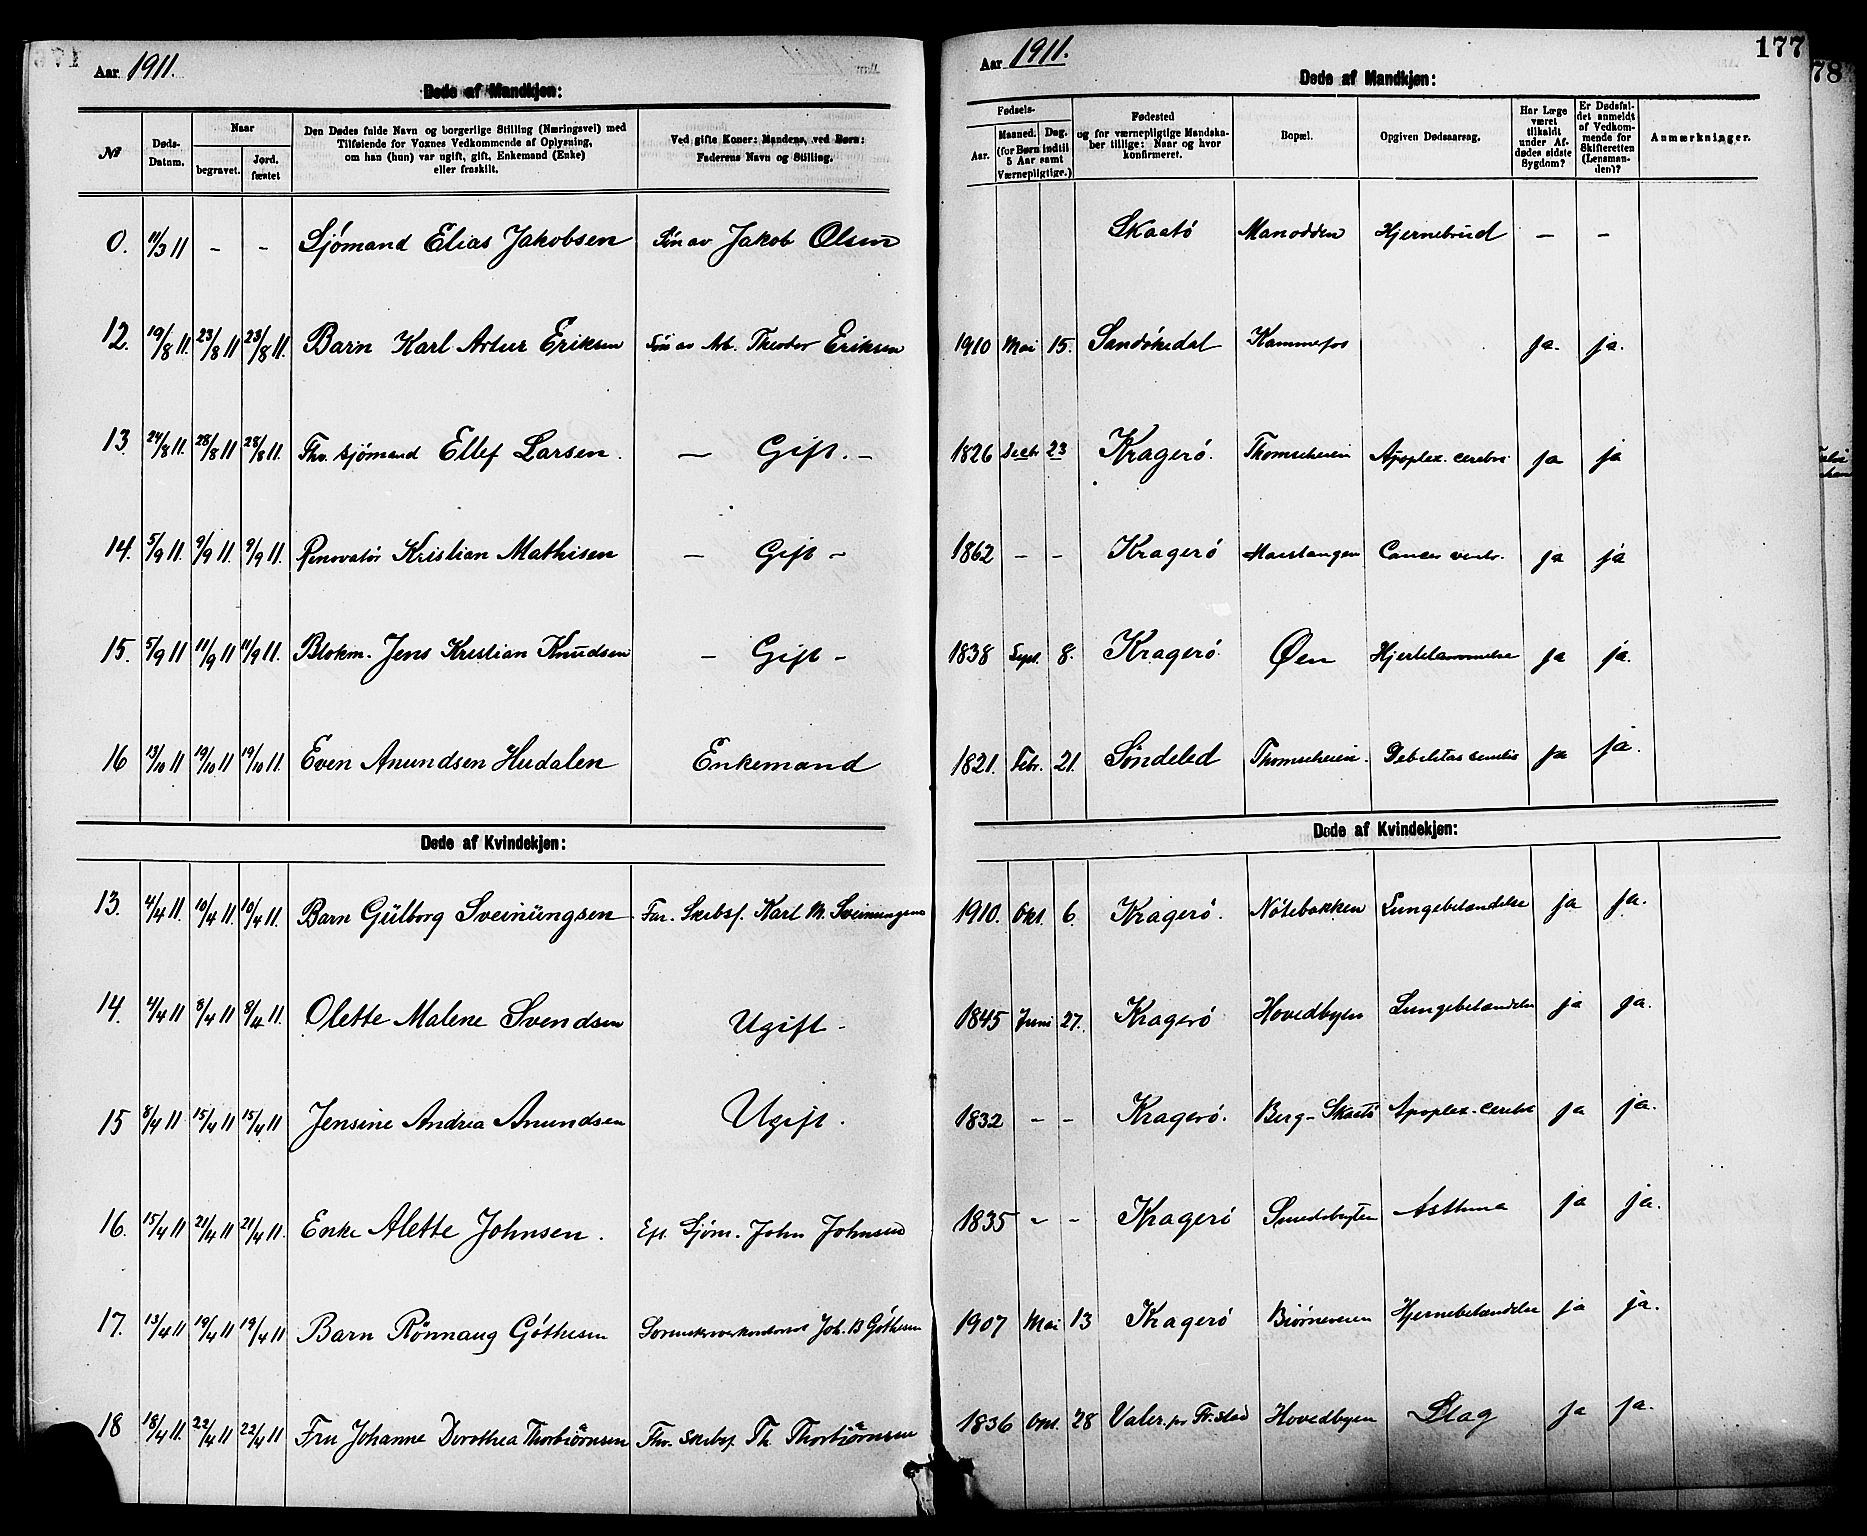 Aar 1911.
Døde af Mandkjøn:
№ Døds-Datum. Naar begravet. Jord.fæstet Den Dødes fulde Navn og borgerlige Stilling (Næringsvei) med Tilføiende for Voxnes Vedkommende af Oplysning, om han (hun) var ugift, gift, Enkemand (Enke) eller fraskilt. Ved gifte Koner: Mandens, ved Børn: Faderens Navn og Stilling.
0. 11/3 11 - - Sjømand Elias Jakobsen Søn av Jakob Olsen
12. 19/8 11. 23/8 11 23/8 11. Barn Karl Artur Eriksen Søn av Arb. Theodor Eriksen
13 24/8 11. 28/8 11 28/8 11. Fhv. sjømand Ellef Larsen. — Gift. —
14. 5/9 11. 9/9 11. 9/9 11. Renovatør Kristian Mathisen - Gift -
15. 5/9 11 11/9 11 11/9 11. Blokm. Jens Kristian Knudsen - Gift -
16 13/10 11 19/10 11 19/10 11. Even Anundsen Hudalen Enkemand
Døde af Kvindekjøn:
13. 4/4 11. 10/4 11. 10/4 11. Barn Gülborg Sveinüngsen Far. Skibsf. Karl M. Sveinungsen
14. 4/4 11. 8/4 11 8/4 11. Olette Malene Svendsen Ugift -
15 8/4 11 15/4 11 15/4 11 Jensine Andrea Anundsen Ugift.
16. 15/4 11 21/4 11 21/4 11. Enke Alette Johnsen. Eft. Sjøm. John Johnsen
17. 13/4 11 19/4 11 19/4 11 Barn Rønnaug Gøthesen Joh. B Gøthesen
18 18/4 11. 22/4 11 22/4 11 Fru Johanne Dorothea Thorbiørnsen Fhv. Skibsf. Th. Thorbiørnsen
177
78
Aar 1911.
Døde af Mandkjøn:
Fødsels- Aar. Maaned. Dag. (for Børn indtil 5 Aar samt Værnepligtige.) Fødested og for værnepligtige Mandskaber tillige: Naar og hvor konfirmeret. Bopæl. Opgiven Dødsaarsag. Har Læge været tilkaldt under Afdødes sidste Sygdom? Er Dødsfaldet anmeldt af Vedkommende for Skifteretten (Lensmanden)? Anmærkninger.
Skaatø Manodden Hjernebrud - -
1910 Mai 15. Sandøkedal Kammerfos ja. ja.
1826 Decbr 23 Kragerø. Thomesheien Apoplex. cerebri ja ja
1862 - - Kragerø Marstangen Cancer ventr. ja ja
1838 Sept. 8. Kragerø. Øen Hjertelammelse ja ja.
1821. Febr. 21. Søndeled Thomesheien. Debelitas senilis ja ja.
Døde af Kvindekjøn:
1910. Okt. 6. Kragerø. Nøtebakken Lungebetændelse ja ja.
1845 Juni 27. Kragerø Hovedbyen Lungebetændelse ja ja.
1832 - - Kragerø. Berg - Skaatø Apoplex. cerebri ja ja.
1835 - - Kragerø Smedsbugten Asthma ja ja.
1907 Mai 13 Kragerø Biørneveien Hjernebetændelse ja ja.
1836 Okt. 28 Valer. pr Fr.stad Hovedbyen Slag ja ja.